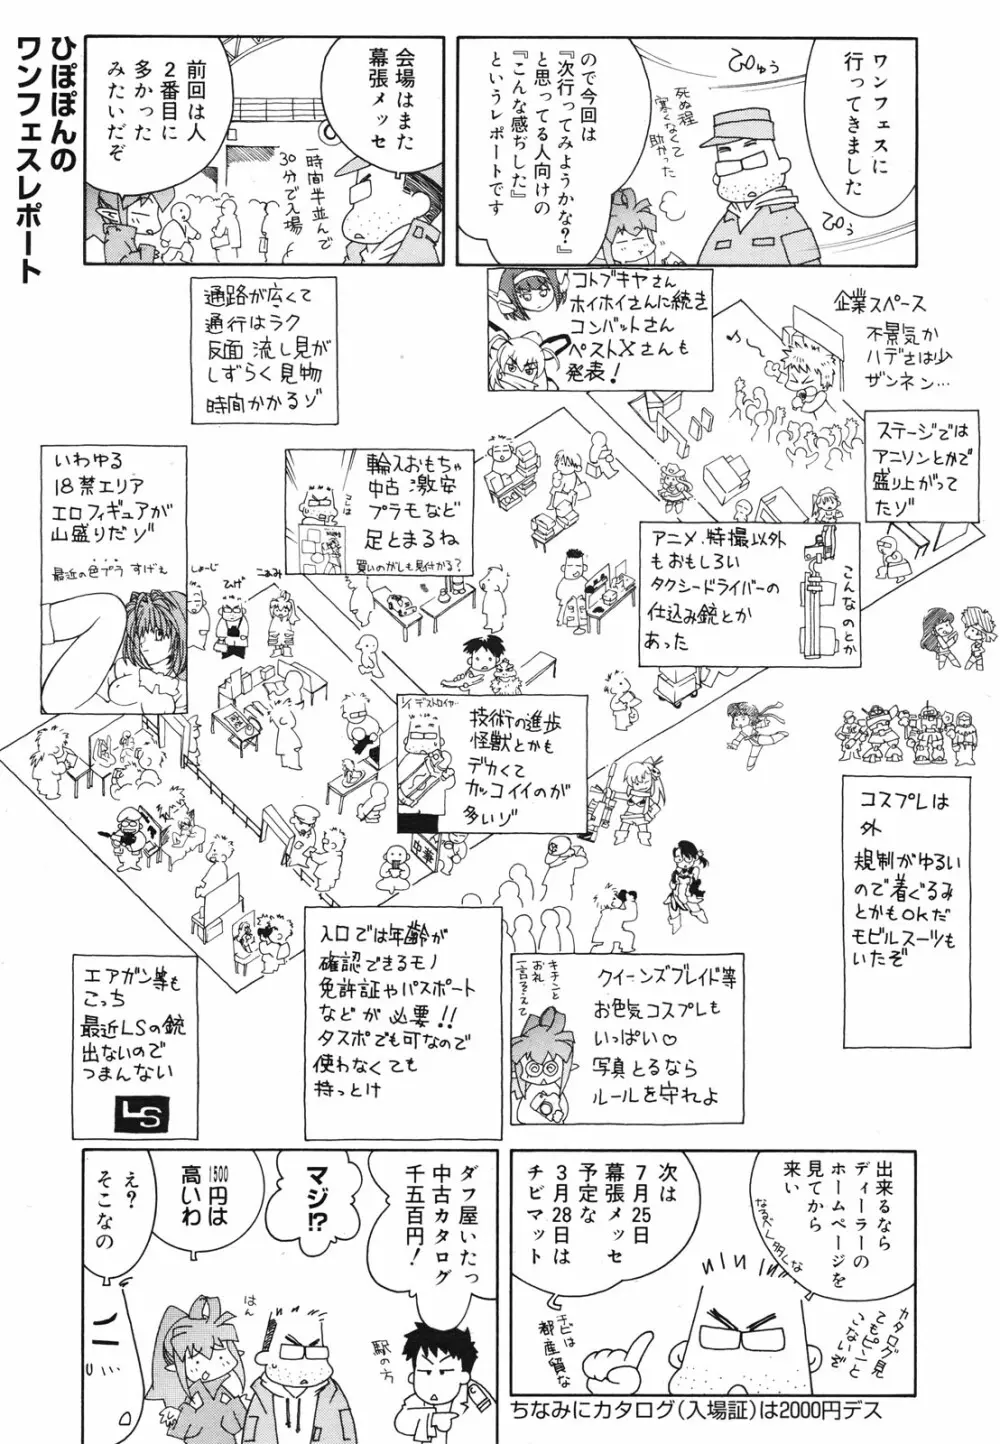 ひぽぽんの
ワンフェスレポート
ワンフェスに
行ってきました
ひゅう
ひゅう
死ぬ程
寒くなくて
助かった
ので今回は
『次行ってみようかな?』
と思ってる人向けの
『こんな感ぢした』
というレポートです
会場はまた
幕張メッセ
一時間半並んで
30分で入場
前回は人
2番目に
多かった
みたいだぞ
企業スペース
不景気か
ハデさは少
ザンネン…
コトブキヤさん
ホイホイさんに続き
コンバットさん
ペストXさんも
発表!
通路が広くて
通行はラク
反面 流し見が
しずらく見物
時間かかるゾ
ステージでは
アニソンとかで
盛り上がって
たゾ
輸入おもちゃ
中古 激安
プラモなど
足とまるね
買いのがしも見付かる?
いわゆる
18禁エリア
エロフィギュアが
山盛りだゾ
最近の色プラ すげえ
しょーじ
ひげ
こあみ
アニメ、特撮以外
もおもしろい
タクシードライバーの
仕込み銃とか
あった
こんなのとか
1/1 デストロイヤー…
技術の進歩
怪獣とかも
デカくて
カッコイイのが
多いゾ
中華
コスプレは
外
規制がゆるい
ので着ぐるみ
とかもOKだ
モビルスーツも
いたぞ
クイーンズブレイド等
お色気コスプレも
いっぱい♡
写真とるなら
ルールを守れよ
キチンと
お礼
一言そえて
入口では年齢が
確認できるモノ
免許証やパスポート
などが必要!!
タスポでも可なので
使わなくても
持っとけ
エアガン等も
こっち
最近LSの銃
出ないので
つまんない
LS
出来るなら
ディーラーの
ホームページを
見てから
来い
カタログ見
てもピンと
こないぞ
次は
7月25日
幕張メッセ
予定な
3月28日は
チビマット
チビは
都産貿な
ちなみにカタログ(入場証)は2000円デス
ダフ屋いたっ
中古カタログ
千五百円!
駅の方
マジ!?
1500円は
高いわ
はん
え?
そこなの